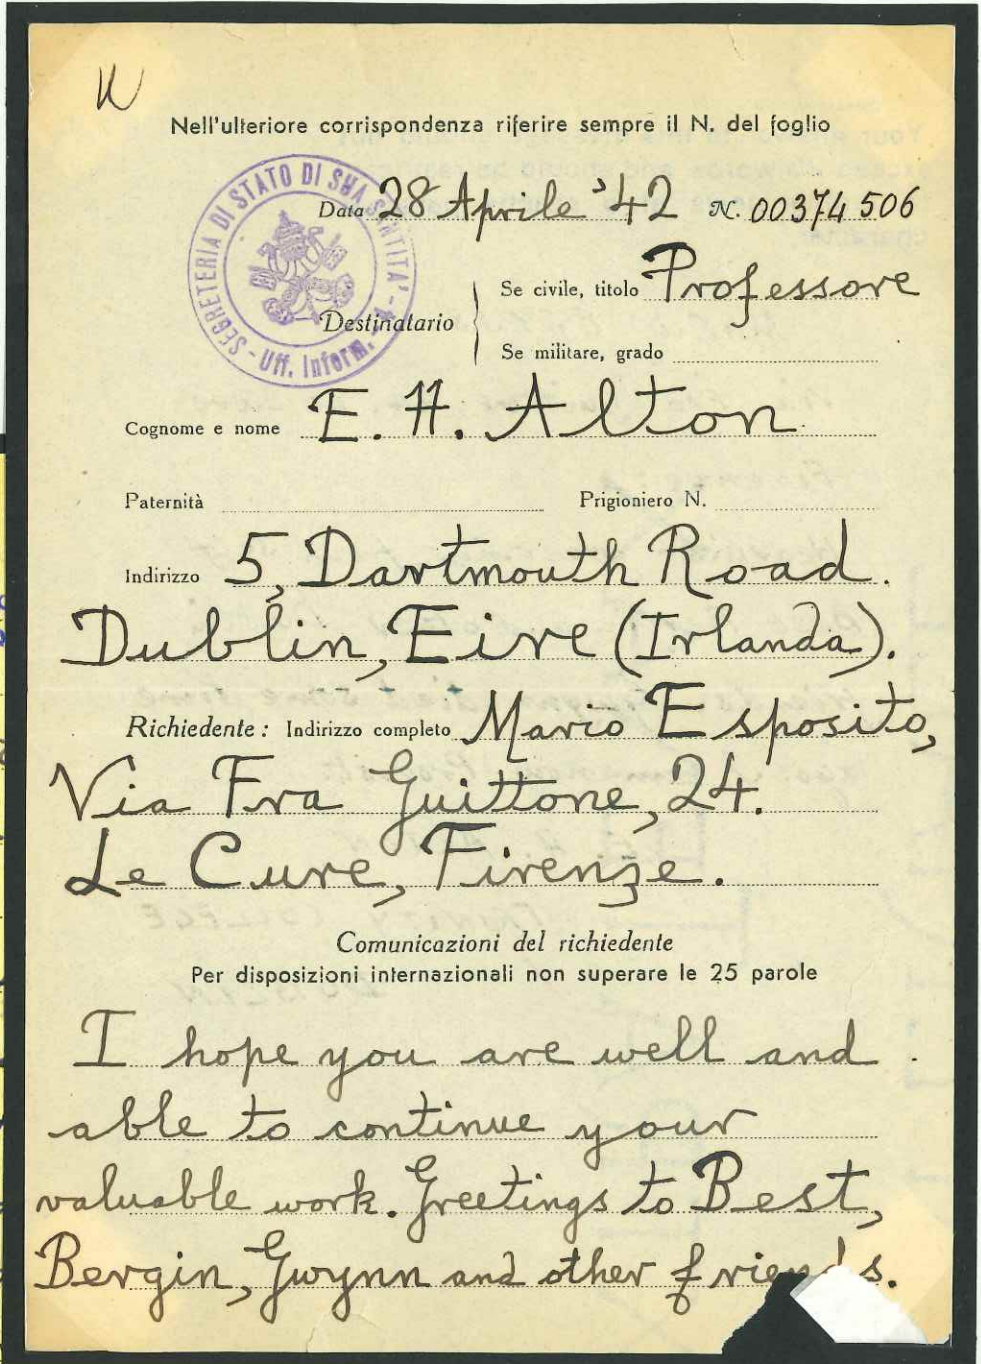 Nell'ulteriore corrispondenza riferire sempre il N. del foglio
SEGRETERIA DI STATO DI SUA SANTITA' - Uff. Inform. -
Data 28 Aprile '42 N. 00374506
Destinatario
Se civile, titolo Professore
Se militare, grado
Cognome e nome E. H. Alton
Paternità Prigioniero N.
Indirizzo 5, Dartmouth Road.
Dublin, Eire (Irlanda).
Richiedente: Indirizzo completo Mario Esposito,
Via Fra Guittone, 24.
Le Cure, Firenze.
Comunicazioni del richiedente
Per disposizioni internazionali non superare le 25 parole
I hope you are well and
able to continue your
valuable work. Greetings to Best,
Bergin, Gwynn and other friends.